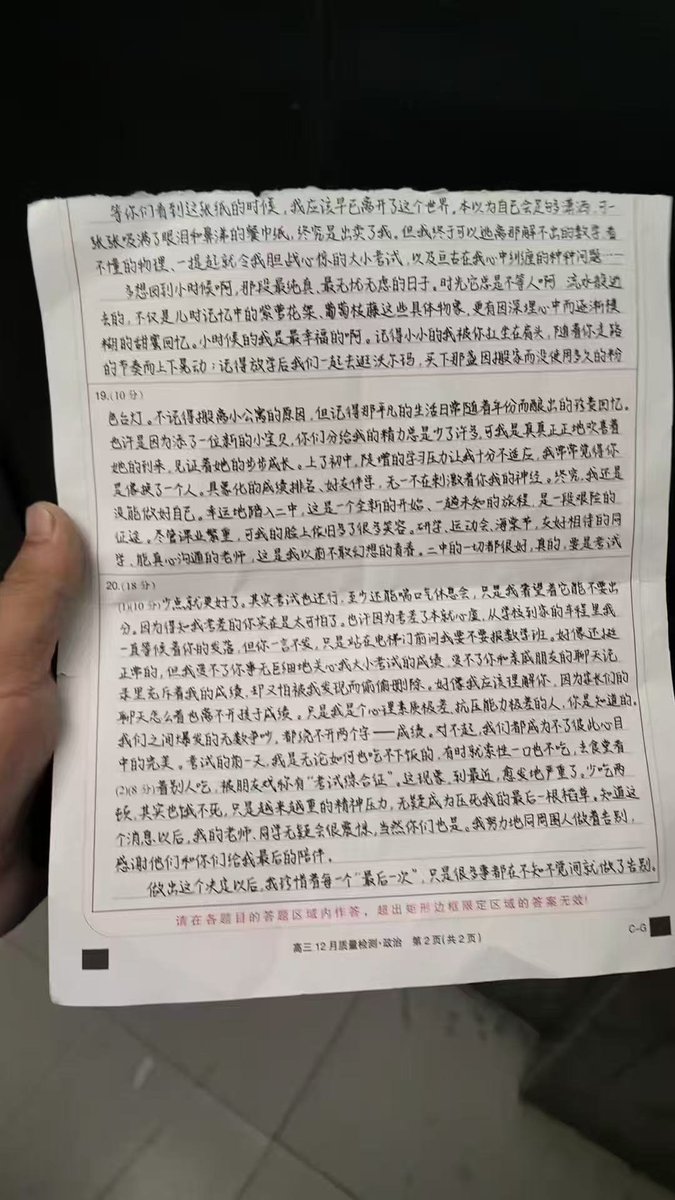 等你们看到这张纸的时候，我应该早已离开了这个世界。本以为自己会足够潇洒，可一
张张吸满了眼泪和鼻涕的餐巾纸，终究是出卖了我。但我终于可以逃离那解不出的数学，看
不懂的物理、一提起就令我胆战心惊的大小考试，以及亘古在我心中纠缠的种种问题……
多想回到小时候啊，那段最纯真、最无忧无虑的日子。时光它总是不等人啊，流水般逝
去的，不仅是儿时记忆中的紫萝花架、葡萄枝藤这些具体物象，更有因深埋心中而逐渐模
糊的甜蜜回忆。小时候的我是最幸福的啊。记得小小的我被你扛坐在肩头，随着你走路
的节奏而上下晃动；记得放学后我们一起去逛沃尔玛，买下那盏因搬家而没使用多久的粉
19.(10分)
色台灯。不记得搬离小公寓的原因，但记得那平凡的生活日常随着年份而酿出的珍贵回忆。
也许是因为添了一位新的小宝贝，你们分给我的精力总是少了许多，可我是真真正正地欢喜着
她的到来，见证着她的步步成长。上了初中，陡增的学习压力让我十分不适应，我常常觉得你
是像换了一个人。具象化的成绩排名、好友伴学，无一不在刺激着你我的神经。终究，我还是
没能做好自己。幸运地踏入二中，这是一个全新的开始、一趟未知的旅程，是一段艰险的
征途。尽管课业繁重，可我的脸上依旧多了很多笑容。研学、运动会、海棠节，友好相待的同
学、能真心沟通的老师，这是我以前不敢幻想的青春。二中的一切都很好，真的，要是考试
20.(18分)
(1)(10分)少点就更好了。其实考试也还行，至少还能喘口气休息会，只是我奢望着它能不要出
分。因为得知我考差的你实在是太可怕了。也许因为考差了本就心虚，从学校到家的车程里我
一直等候着你的发落，但你一言不发，只是站在电梯门前问我要不要报数学班。好像还挺
正常的，但我受不了你事无巨细地关心我大小考试的成绩，受不了你和亲戚朋友的聊天记
录里充斥着我的成绩，却又怕被我发现而偷偷删除。好像我应该理解你，因为家长们的
聊天怎么着也离不开孩子成绩。只是我是个心理素质极差、抗压能力极差的人，你是知道的。
我们之间爆发的无数争吵，都绕不开两个字——成绩。对不起，我们都成为不了彼此心目
中的完美。考试的前一天，我是无论如何也吃不下饭的，有时就索性一口也不吃，去食堂看
(2)(8分)着别人吃，被朋友戏称有“考试综合征”。这现象，到最近，愈发地严重了。少吃两
顿，其实也饿不死，只是越来越重的精神压力，无疑成为压死我的最后一根稻草。知道这
个消息以后，我的老师、同学无疑会很震惊，当然你们也是。我努力地同周围人做着告别，
感谢他们和你们给我最后的陪伴，
做出这个决定以后，我珍惜着每一个“最后一次”，只是很多事都在不知不觉间就做了告别。
请在各题目的答题区域内作答，超出矩形边框限定区域的答案无效！
高三12月质量检测·政治 第2页(共2页)
C-G